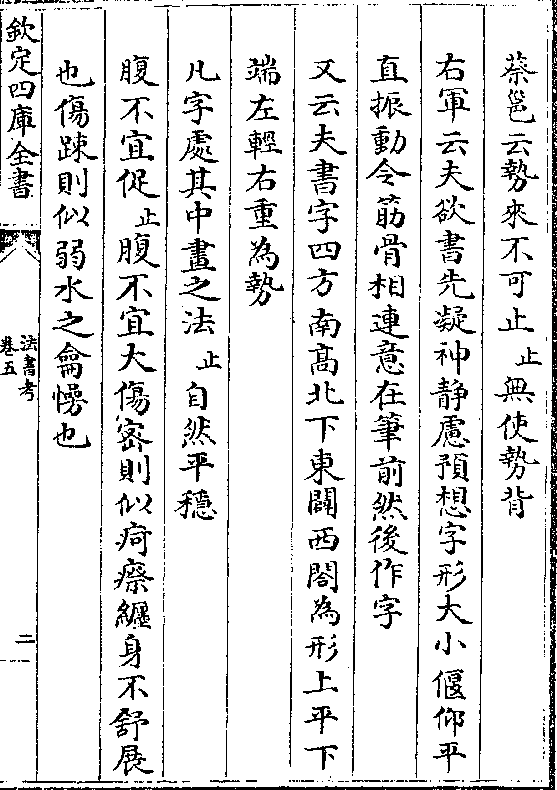 蔡邕云勢來不可止止無使勢背
右軍云夫欲書先凝神静慮預想字形大小偃仰平
直振動令筋骨相連意在筆前然後作字
又云夫書字四方南髙北下東闢西闔為形上平下
端左輕右重為勢
凡字處其中畫之法止自然平穩
腹不宜促止腹不宜大傷宻則似疴瘵纒身不舒展
也傷踈則似弱水之禽慢也
欽定四庫全書
法書考
卷五
二